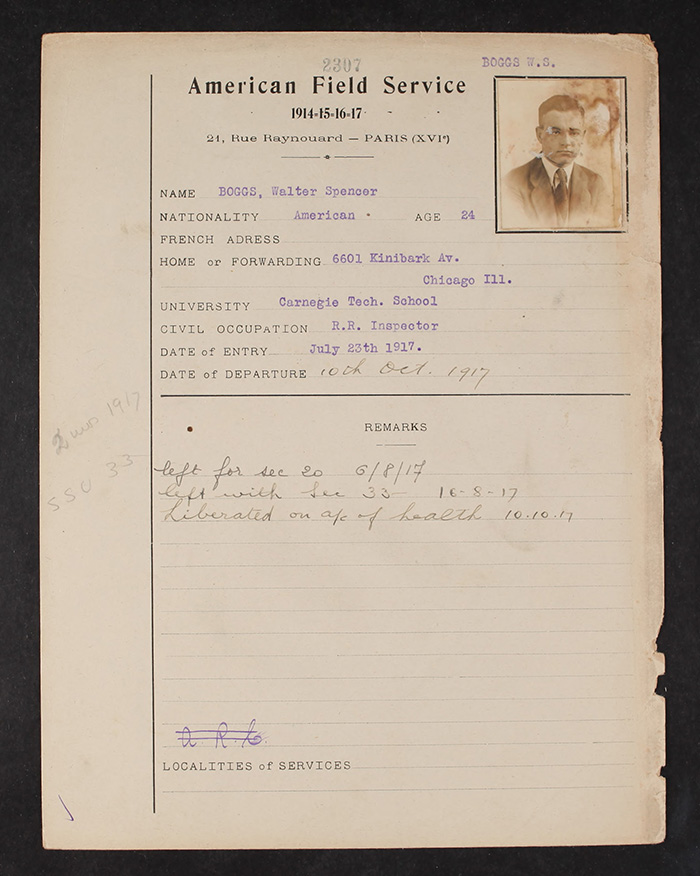 2307
BOGGS W.S.
American Field Service
1914-15-16-17
21, Rue Raynouard — PARIS (XVIe)
NAME BOGGS, Walter Spencer
NATIONALITY American AGE 24
FRENCH ADRESS
HOME or FORWARDING 6601 Kinibark Av.
Chicago Ill.
UNIVERSITY Carnegie Tech. School
CIVIL OCCUPATION R.R. Inspector
DATE of ENTRY July 23th 1917.
DATE of DEPARTURE 10th Oct. 1917
2 mos 1917
SSU 33
REMARKS
left for sec 20 6/8/17
left with Sec 33 16-8-17
Liberated on a/c of health 10.10.17
A. R. C.
LOCALITIES of SERVICES